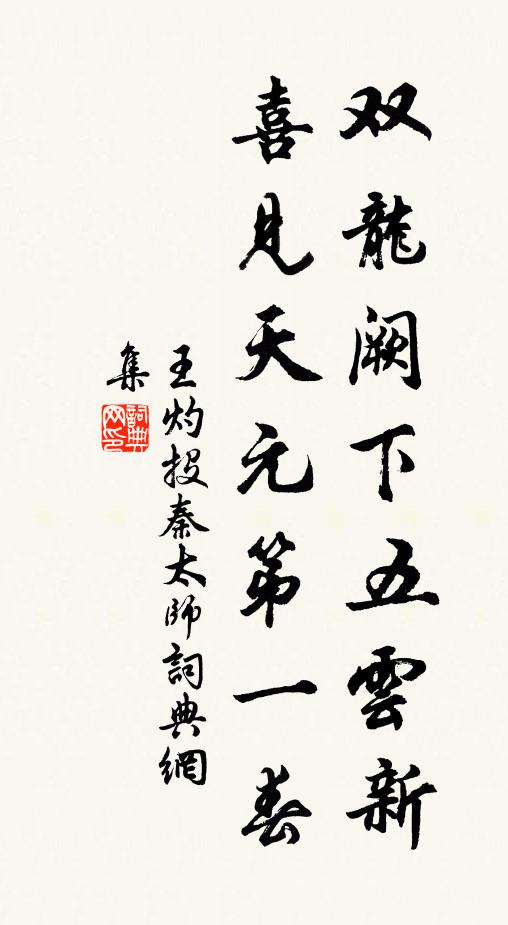 双龍阙下五雲新
喜見天元第一春
王灼投秦太師詞典網
集
詞典网印